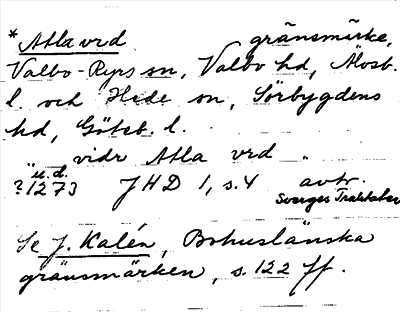 *Atla vrd gränsmärke,
Valbo-Ryrs sn, Valbo hd, Älvsb.
l. och Hede sn, Sörbygdens
hd, Göteb. l.
"vidr Atla vrd"
u.d.
?1273 JHD 1, s. 4 avtr.
Sveriges Traktater
Se J. Kalén, Bohuslänska
gränsmärken, s. 122 ff.